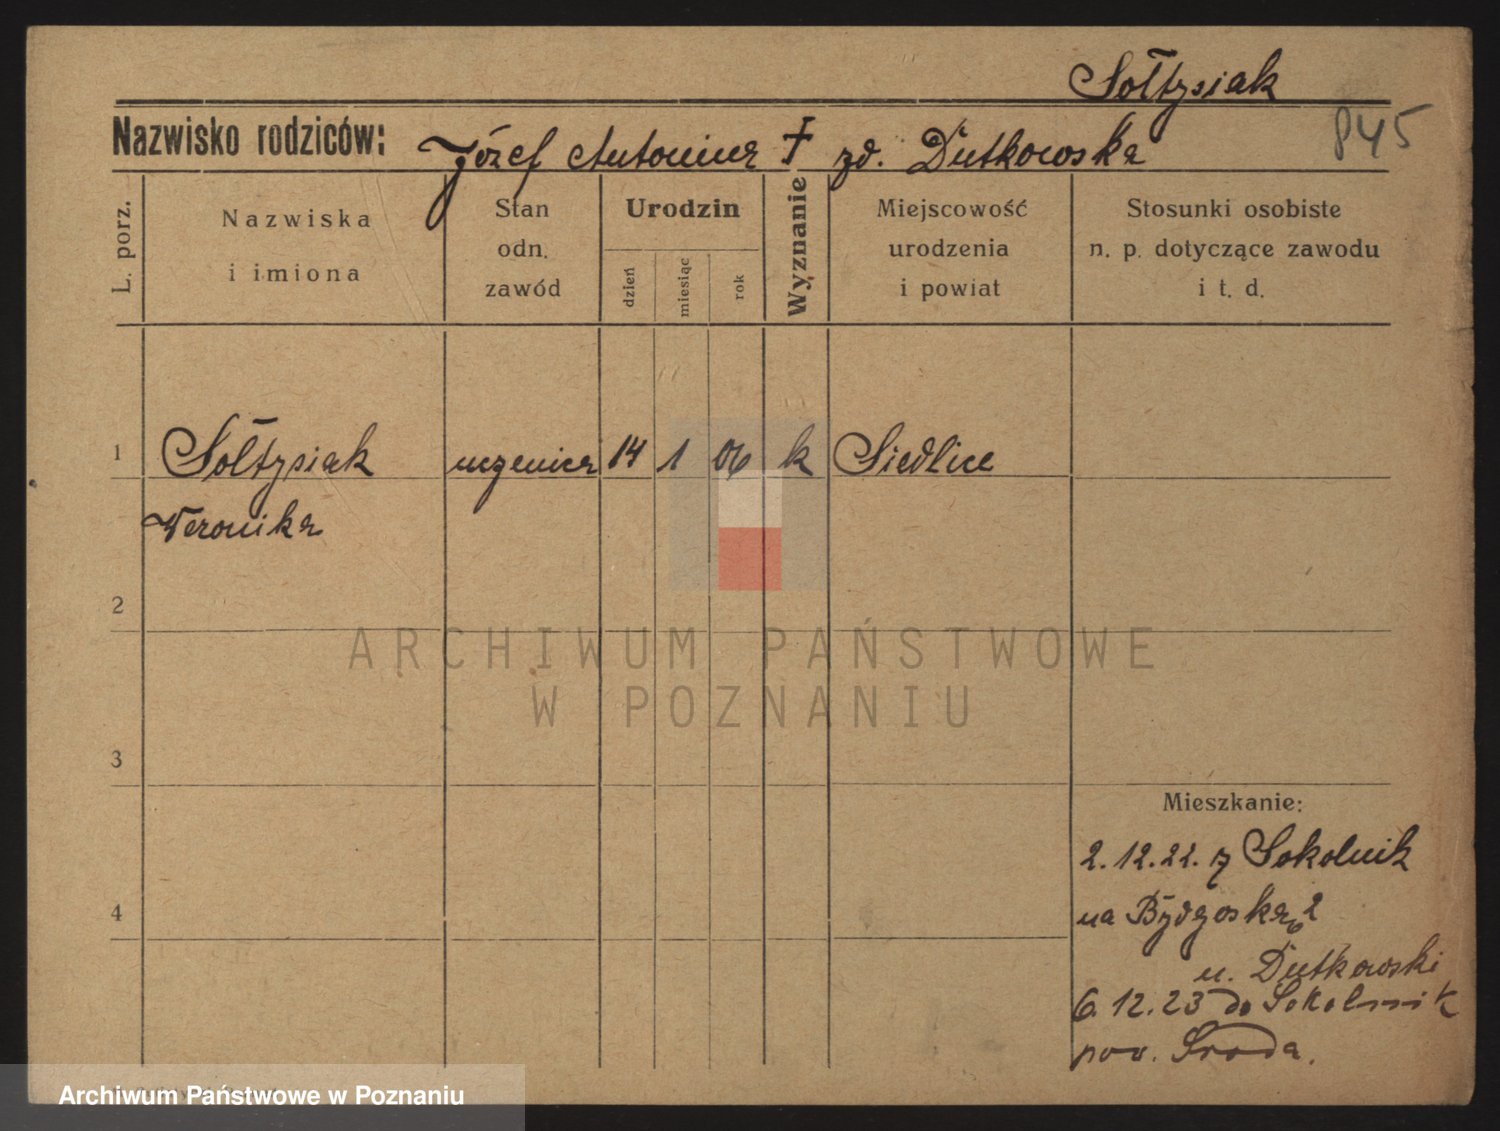 Sołtysiak
Nazwisko rodziców: Józef Antonina † zd. Dutkowska 845
L. porz.
Nazwiska i imiona
Stan odn. zawód
Urodzin
dzień
miesiąc
rok
Wyznanie
Miejscowość urodzenia i powiat
Stosunki osobiste n. p. dotyczące zawodu i t. d.
1 Sołtysiak uczenica 14 1 06 k Siedlice
Weronika
2
ARCHIWUM PAŃSTWOWE
W POZNANIU
3
Mieszkanie:
2.12.22. z Sokolnik
4
na Bydgoską 2
u. Dutkowski
6.12.23 do Sokolnik
pow. Środa.
Archiwum Państwowe w Poznaniu